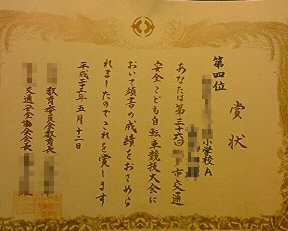 賞状
第四位
小学校A
あなたは第三十六回 市交通
安全こども自転車競技大会に
おいて頭書の成績をおさめら
れましたのでこれを賞します
平成二十三年五月十二日
教育委員会教育長
交通安全協会会長